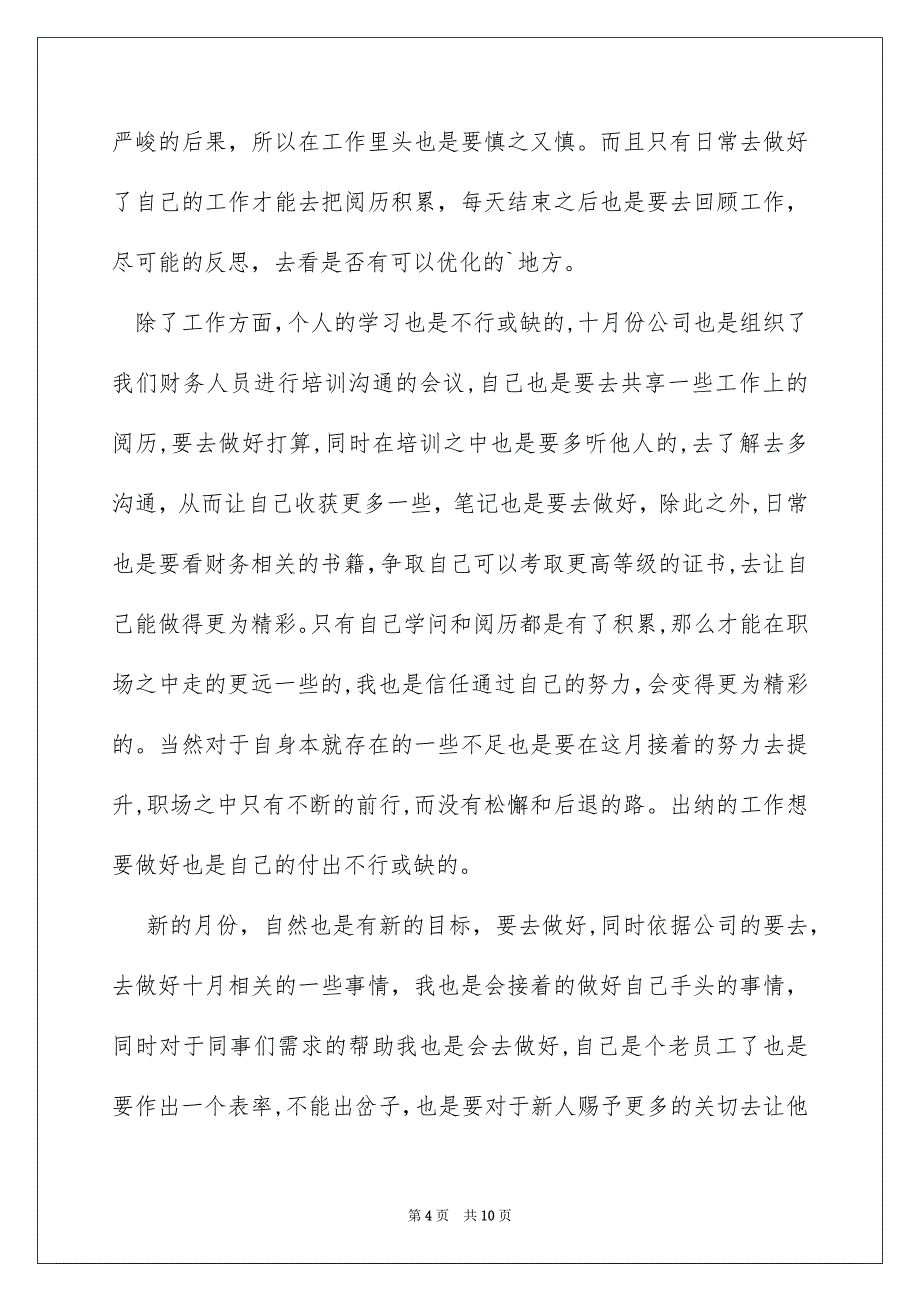 严峻的后果，所以在工作里头也是要慎之又慎。而且只有日常去做好
了自己的工作才能去把阅历积累，每天结束之后也是要去回顾工作，
尽可能的反思，去看是否有可以优化的`地方。
除了工作方面,个人的学习也是不行或缺的,十月份公司也是组织了
我们财务人员进行培训沟通的会议,自己也是要去共享一些工作上的
阅历,要去做好打算,同时在培训之中也是要多听他人的,去了解去多
沟通，从而让自己收获更多一些，笔记也是要去做好，除此之外,日常
也是要看财务相关的书籍，争取自己可以考取更高等级的证书,去让自
己能做得更为精彩。只有自己学问和阅历都是有了积累,那么才能在职
场之中走的更远一些的,我也是信任通过自己的努力，会变得更为精彩
的。当然对于自身本就存在的一些不足也是要在这月接着的努力去提
升,职场之中只有不断的前行,而没有松懈和后退的路。出纳的工作想
要做好也是自己的付出不行或缺的。
新的月份，自然也是有新的目标，要去做好,同时依据公司的要去，
去做好十月相关的一些事情，我也是会接着的做好自己手头的事情，
同时对于同事们需求的帮助我也是会去做好,自己是个老员工了也是
要作出一个表率,不能出岔子,也是要对于新人赐予更多的关切去让他
第 4 页 共 10 页